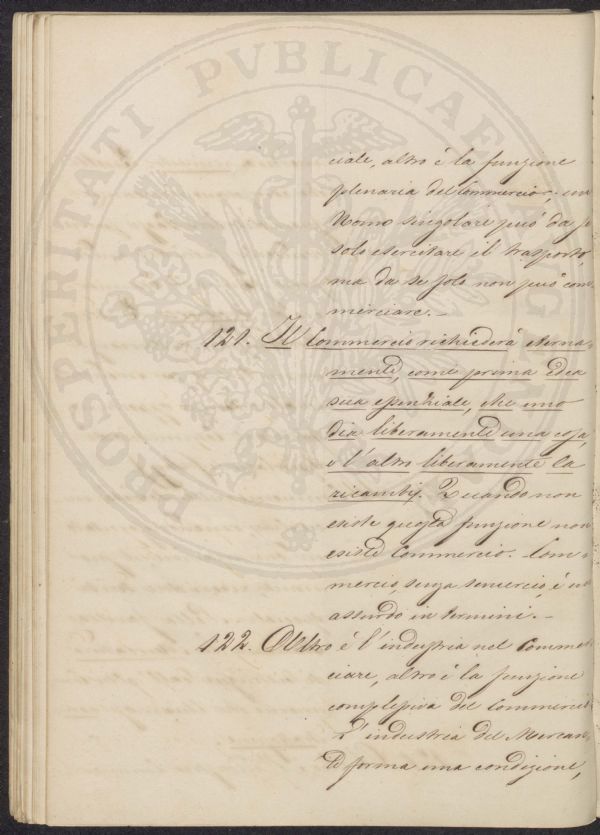 PROSPERITATI PVBLICAE AVGENDAE
ciale, altro è la funzione
plenaria del Commercio; un
Uomo singolare può da se
solo esercitare il trasporto,
ma da se solo non può com
merciare. –
121. Il Commercio richiederà eterna-
mente, come prima ed ea
sua essenziale, che uno
dia liberamente una cosa,
e l'altro liberamente la
ricambj. Quando non
esiste questa funzione non
esiste Commercio. Com-
mercio, senza comercio, è un
assurdo in termini. –
122. Altro è l'industria nel Comme
ciare, altro è la funzione
complessiva del Commercio
L'industria del Mercan
te forma una condizione,